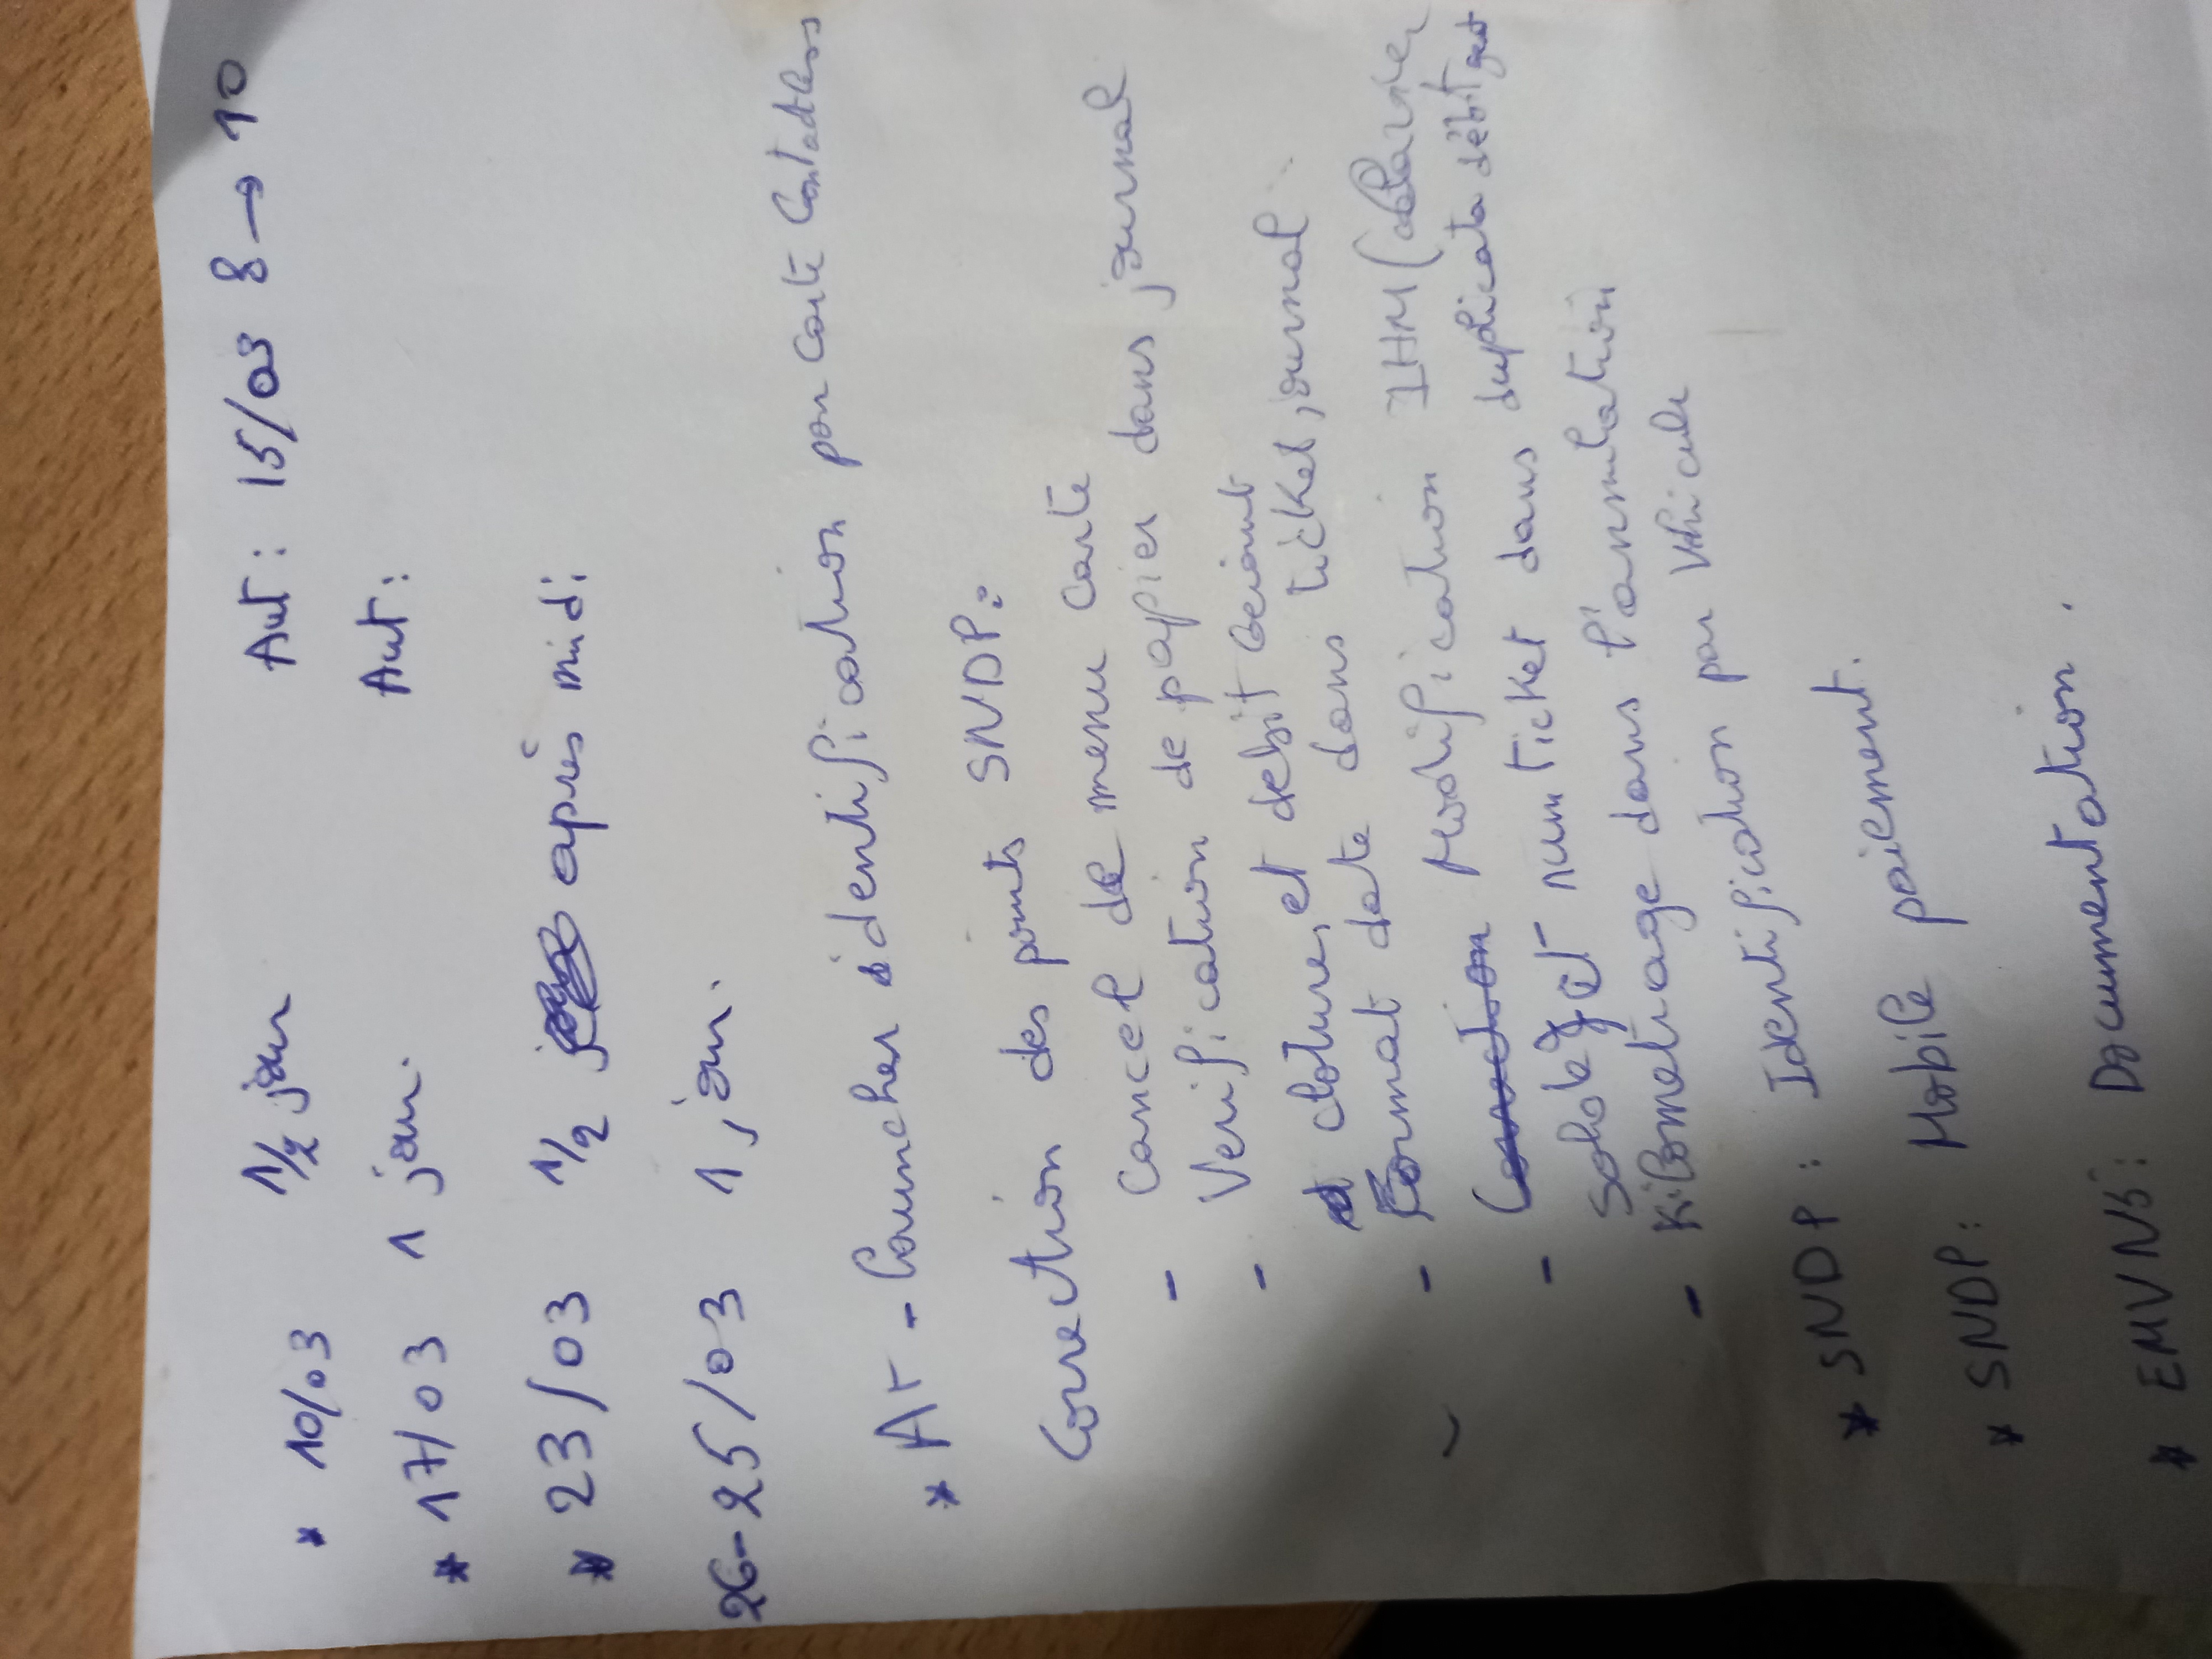 * 10/03 1/2 jour Aut : 15/03 8 → 10
* 17/03 1 jour. Aut :
* 23/03 1/2 après midi
26-25/03 1 jour.
* At - launcher identification par carte Contactless
Correction des points SNDP :
- Cancel de menu carte
- Verification de papier dans journal
cloture, et debit Gerant
- Format date dans ticket journal
- Correction Modification IHM (clavier
solde et num ticket dans duplicata débit
- Kilometrage dans l'annulation
* SNDP : Identification par Véhicule
* SNDP : Mobile paiement.
* EMVN5 : Documentation .